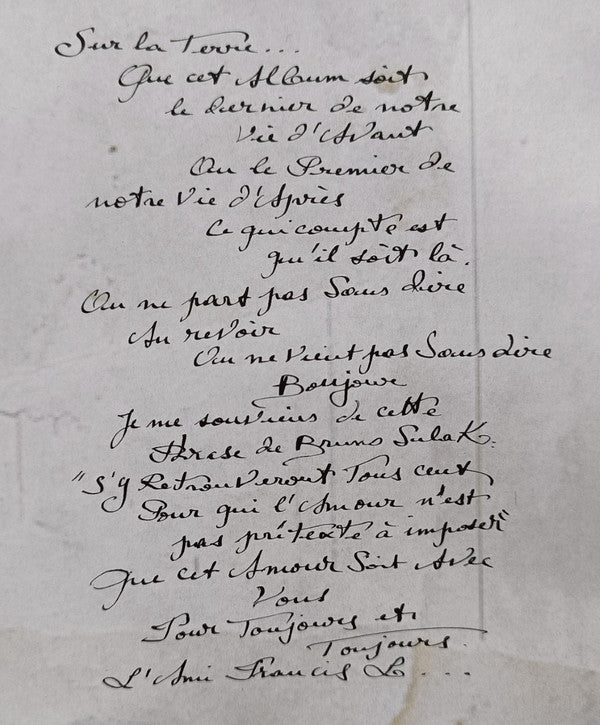 Sur la Terre...
Que cet Album soit
le dernier de notre
Vie d'Avant
Ou le Premier de
notre Vie d'Après
Ce qui compte est
qu'il soit là.
On ne part pas Sans dire
Au revoir
On ne vient pas Sans dire
Bonjour
Je me souviens de cette
Phrase de Bruno Sulak:
"S'y Retrouveront Tous ceux
Pour qui l'Amour n'est
pas prétexte à imposer"
Que cet Amour Soit Avec
Vous
Pour Toujours et
Toujours.
L'Ami Francis L...